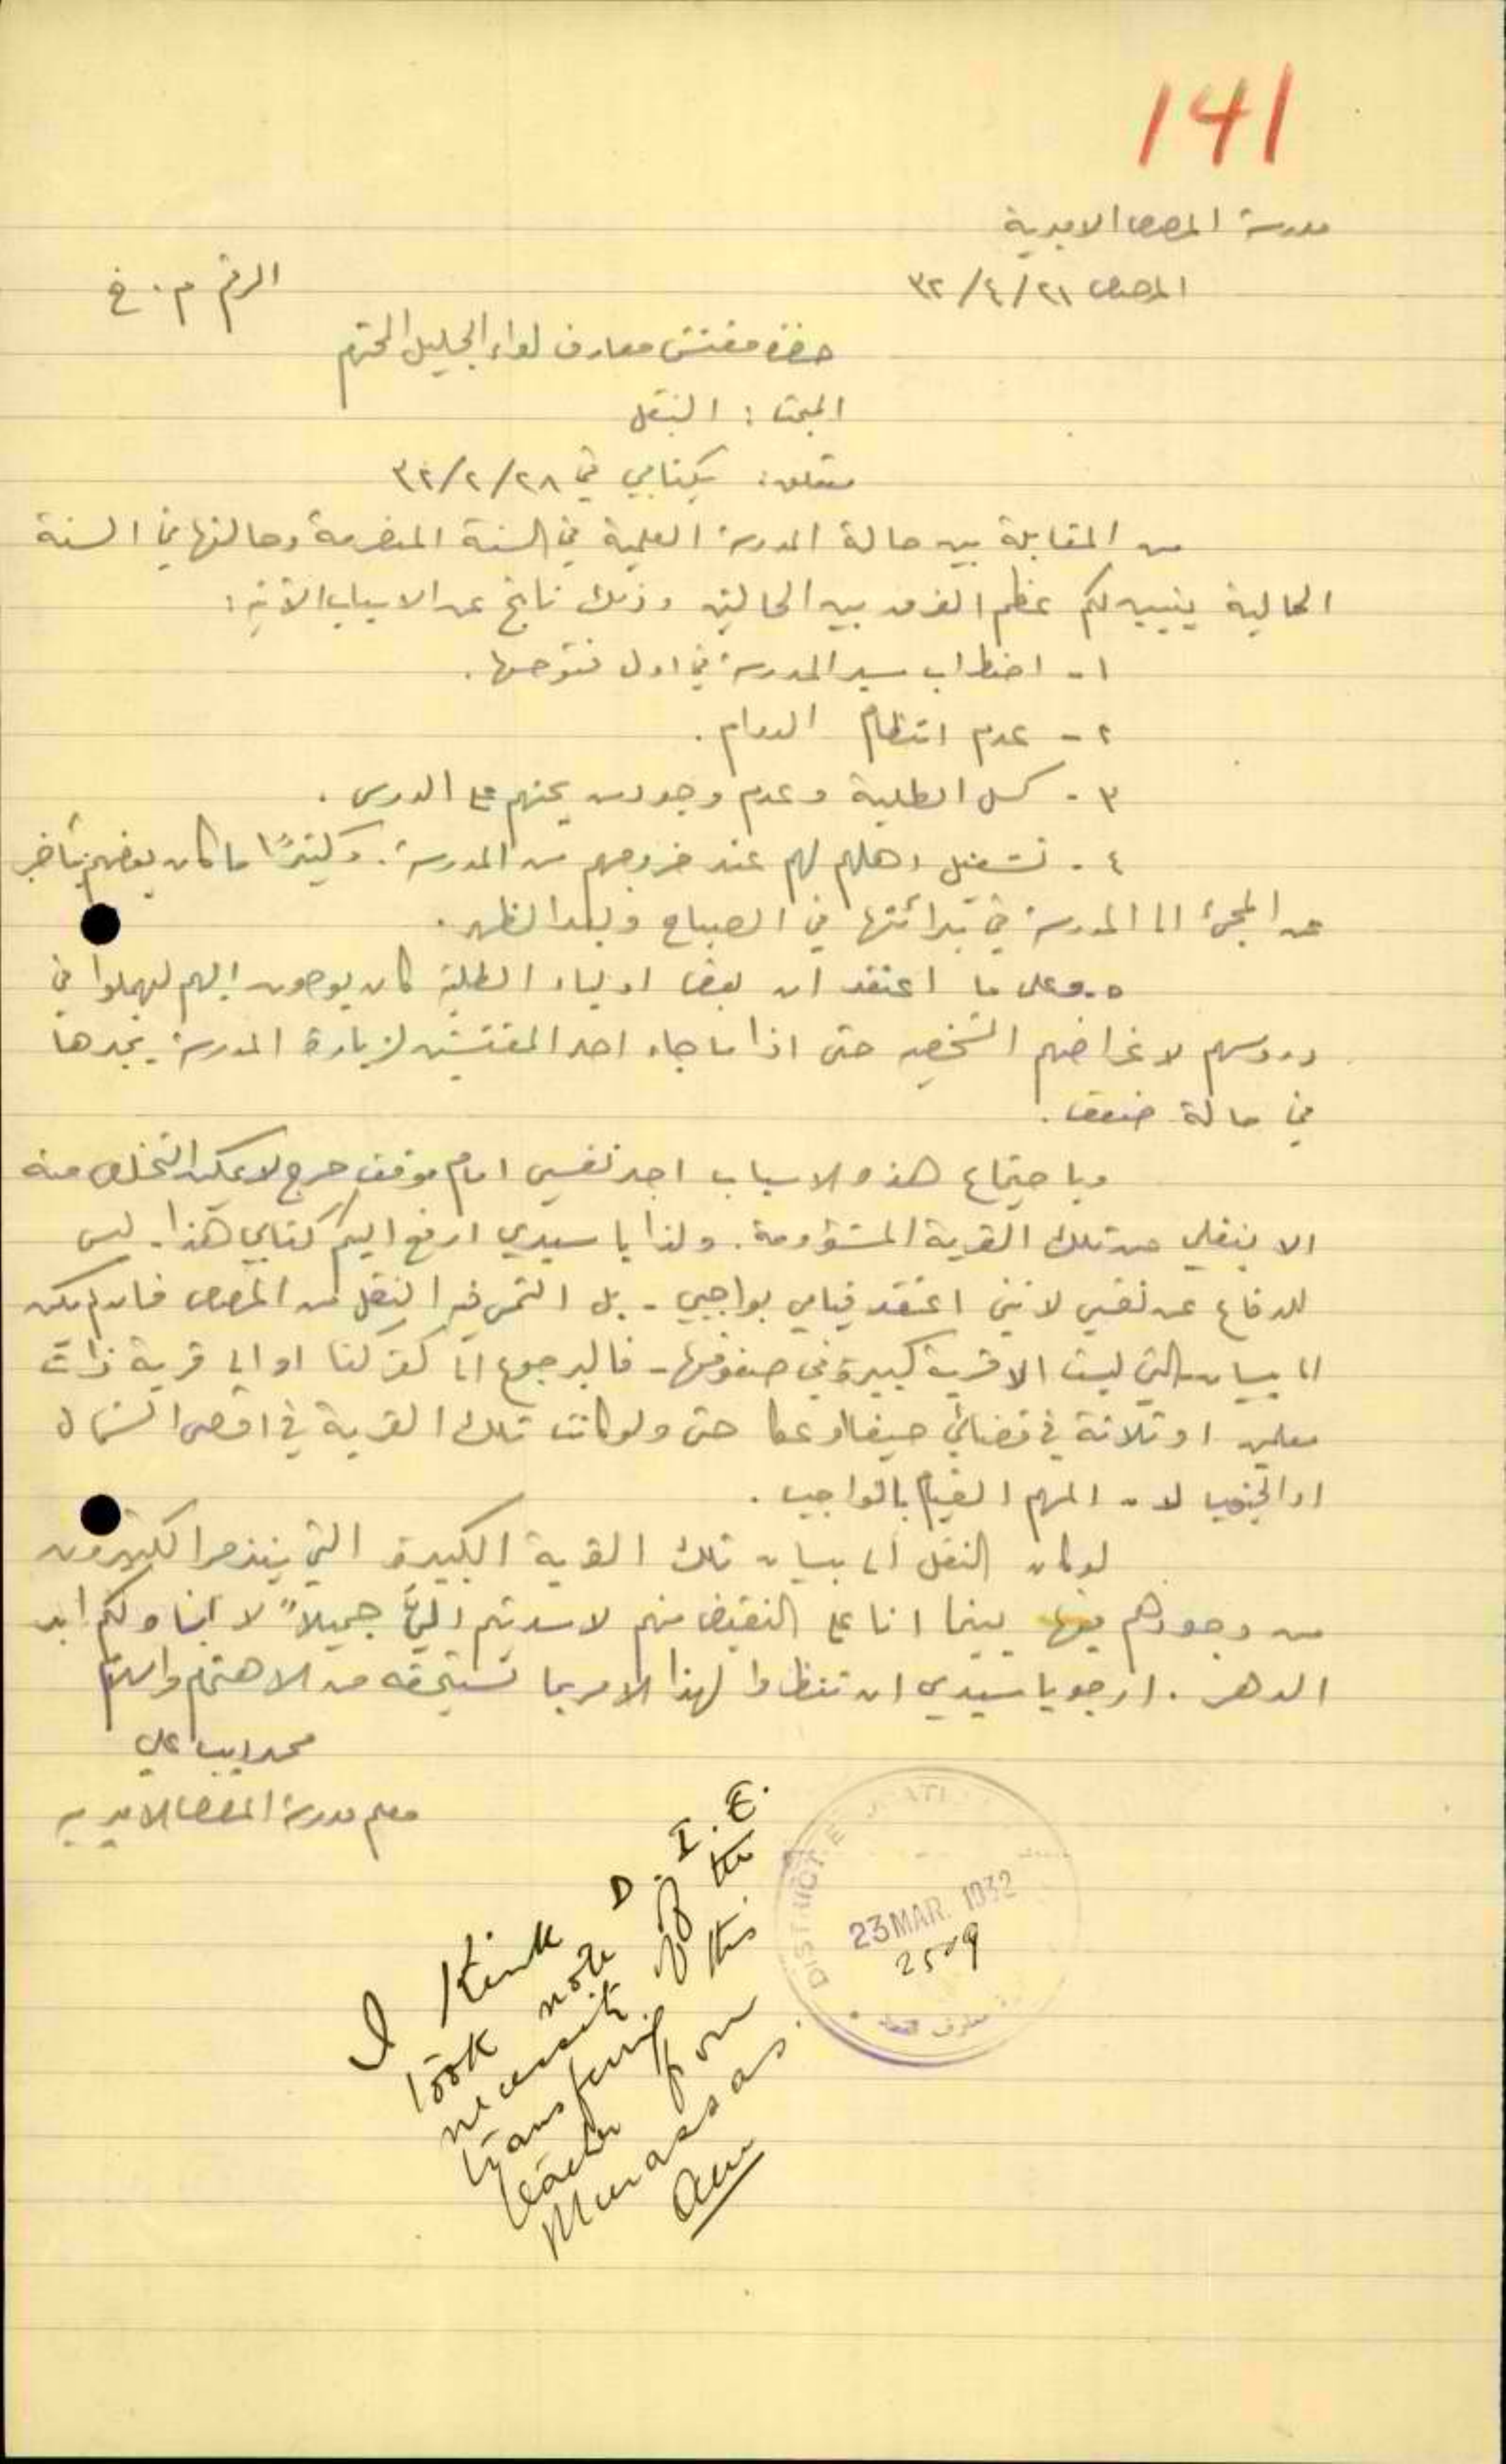 141
مدرسة المرصص الاميرية
المرصص ٢١/٤/٣٢
الرقم م. خ
حضرة مفتش معارف لواء الجليل المحترم
المبحث : النقل
متعلق: بكتابي في ٢٨/٢/٣٢
من المقابلة بين حالة المدرسة العلمية في السنة المنصرمة وحالتها في السنة
الحالية يتبين لكم عظم الفرق بين الحالتين وذلك ناتج عن الاسباب الآتية :
١- اضطراب سير المدرسة في اول فتوحها .
٢- عدم انتظام الدوام .
٣- كسل الطلبة وعدم وجود من يحثهم على الدرس .
٤- تشغيل اهلهم لهم عند خروجهم من المدرسة . وكثيرًا ما كان بعضهم يتأخر
عن المجئ الى المدرسة في بدائتها في الصباح وبعد الظهر .
٥- وعلى ما اعتقد ان بعض اولياء الطلبة كان يوصون اليهم ليهملوا في
دروسهم لاغراضهم الشخصية حتى اذا ما جاء احد المفتشين لزيارة المدرسة يجدها
في حالة ضعف .
وباجتماع هذه الاسباب اجد نفسي امام موقف حرج لا يمكن التخلص منه
الا بنقلي من تلك القرية المشؤومة . ولذا يا سيدي ارفع اليكم كتابي هذا - ليس
للدفاع عن نفسي لانني اعتقد قيامي بواجبي - بل التمس فيه النقل من المرصص فان لم يكن
الى بيسان التي ليست الا قرية كبيرة في صفوفها - فالرجوع الى كفر كنا او الى قرية ذات
معلمين او ثلاثة في قضائي حيفا وعكا حتى ولو كانت تلك القرية في اقصى الشمال
او الجنوب لان المهم القيام بالواجب .
لو كان النقل الى بيسان تلك القرية الكبيرة التي يتذمر الكثيرون
من وجودهم فيها بينما انا على النقيض منهم لاسديتم اليّ جميلاً لا انساه لكم ابد
الدهر . ارجو يا سيدي ان تنظروا لهذا الامر بما تستحقه من الاهتمام والسلام
محمد اديب علي
معلم مدرسة المرصص الاميرية
I think D.I.E.
took note of the
necessity of
transferring this
teacher from
Murassas.
DISTRICT EDUCATI
23 MAR. 1932
2509
معارف